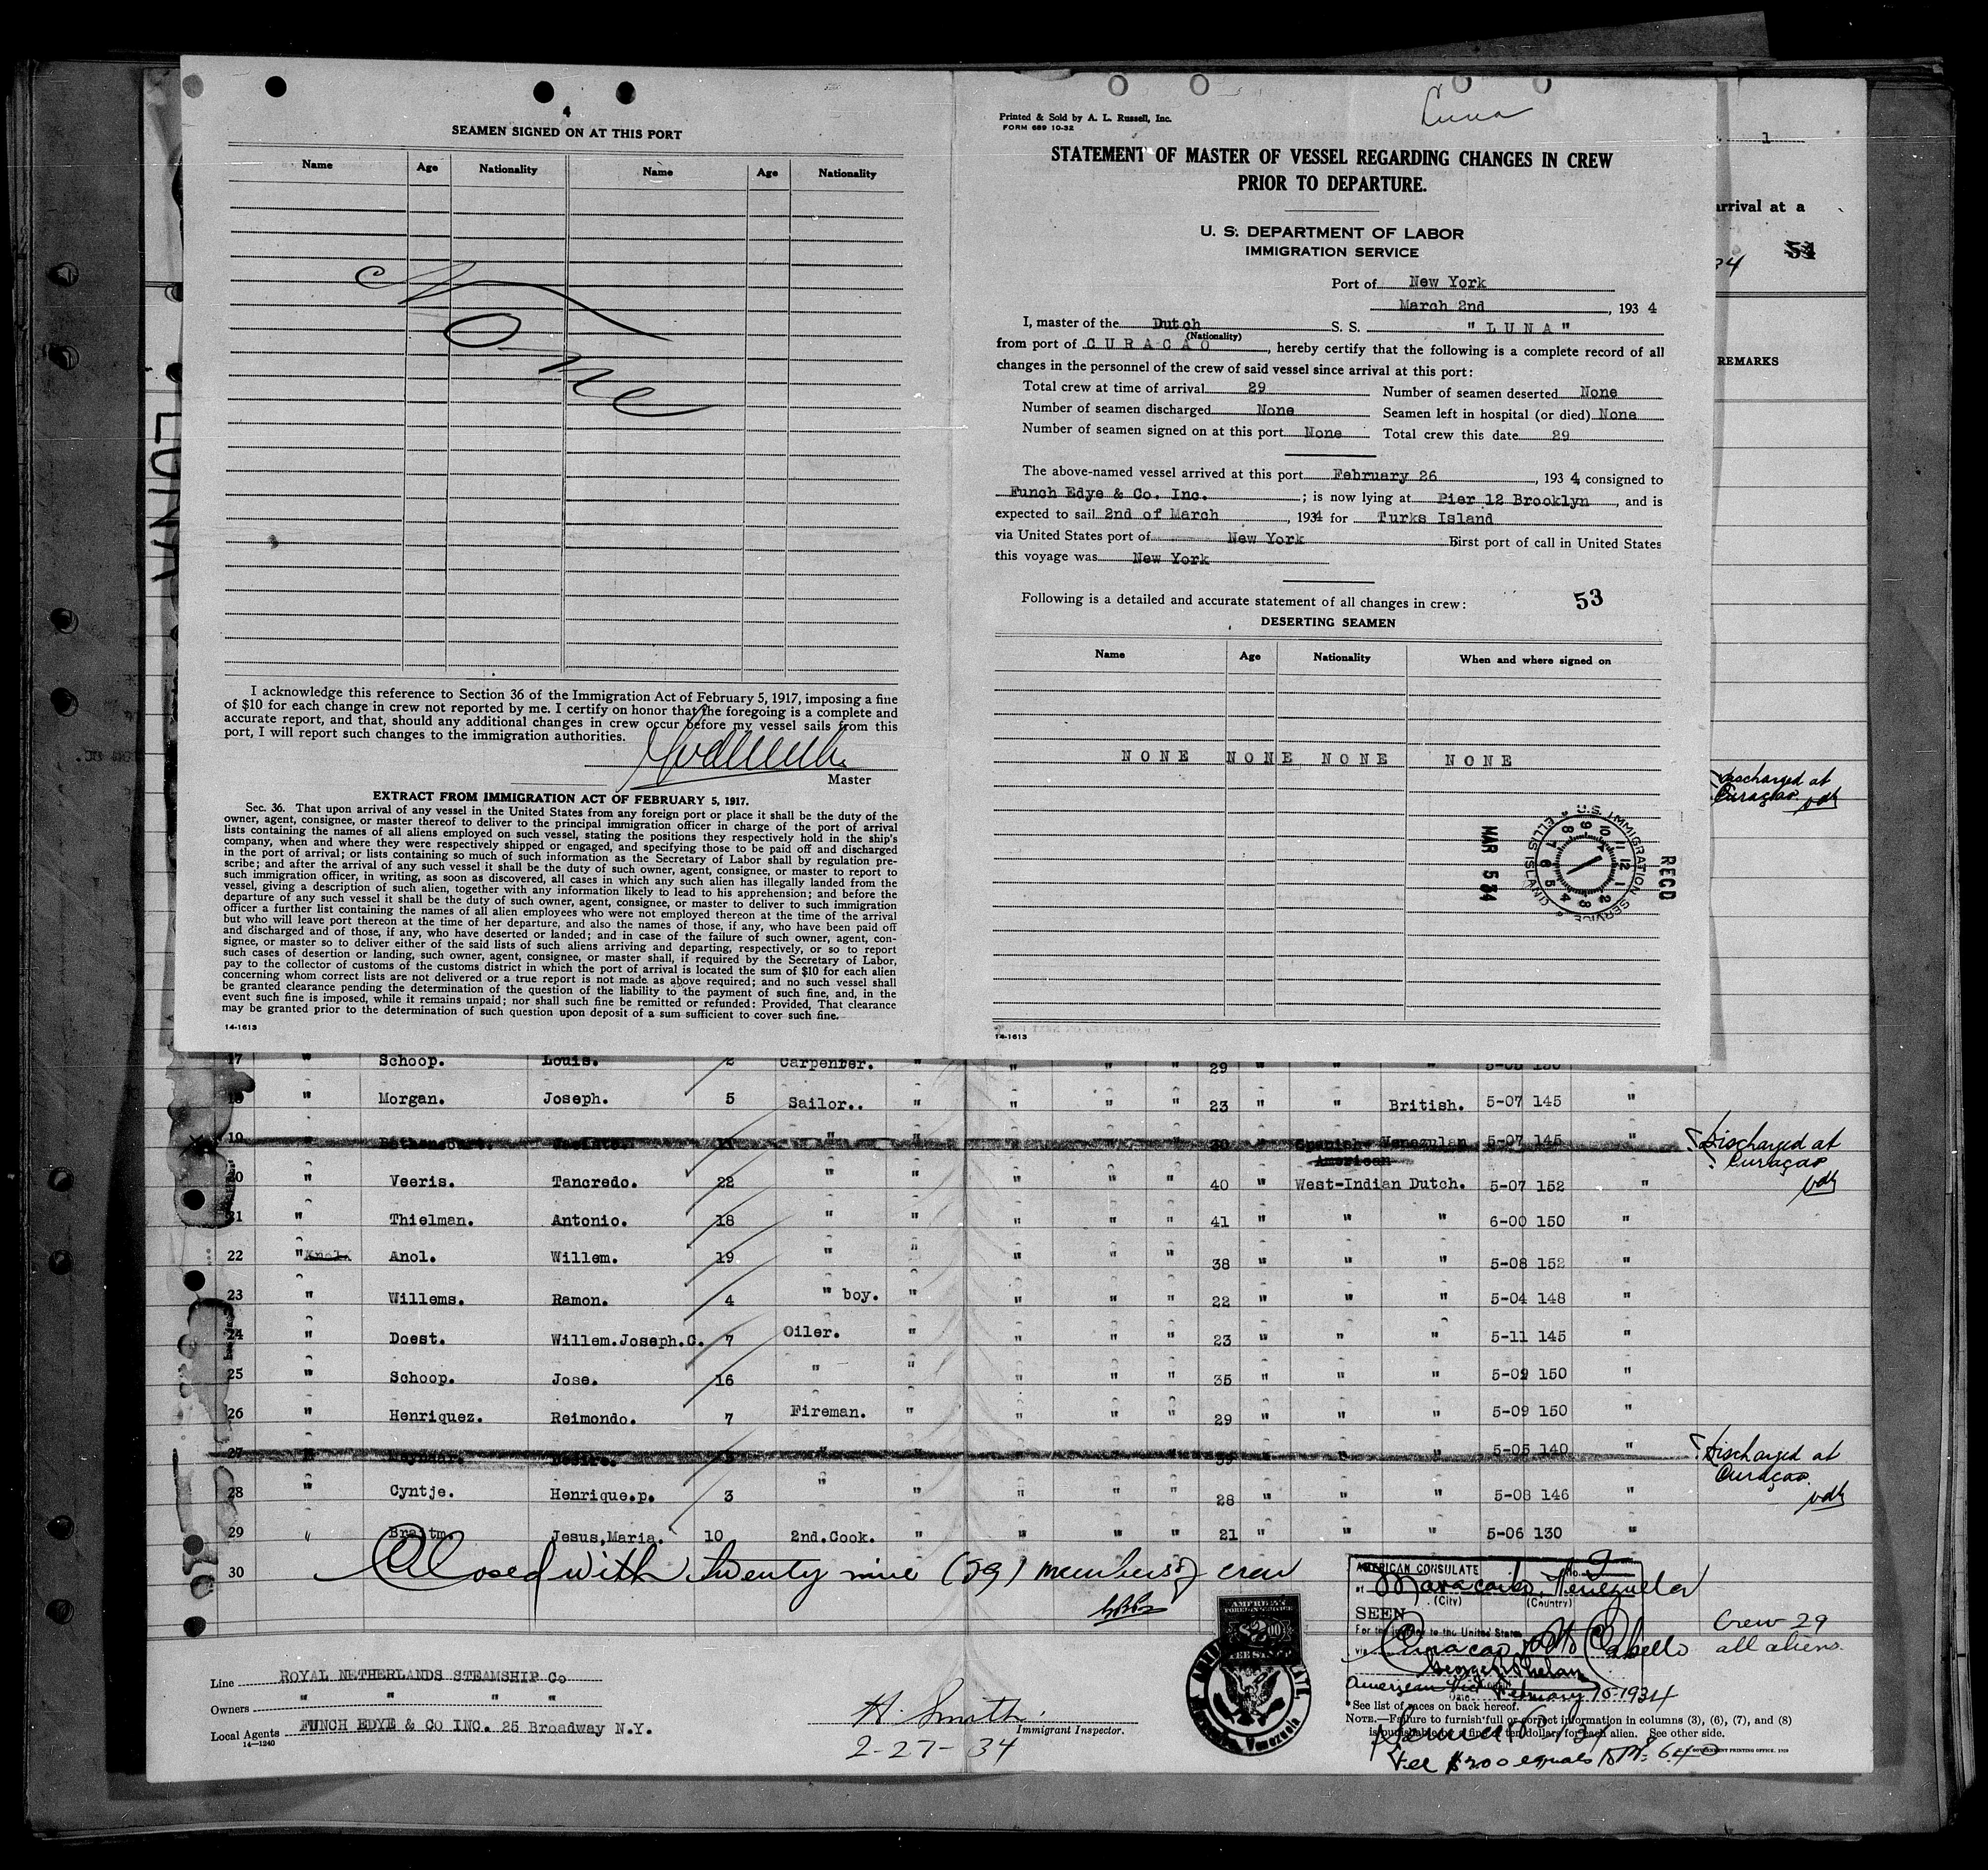 4
SEAMEN SIGNED ON AT THIS PORT
Name Age Nationality Name Age Nationality
None
I acknowledge this reference to Section 36 of the Immigration Act of February 5, 1917, imposing a fine
of $10 for each change in crew not reported by me. I certify on honor that the foregoing is a complete and
accurate report, and that, should any additional changes in crew occur before my vessel sails from this
port, I will report such changes to the immigration authorities.
Master
EXTRACT FROM IMMIGRATION ACT OF FEBRUARY 5, 1917.
Sec. 36. That upon arrival of any vessel in the United States from any foreign port or place it shall be the duty of the
owner, agent, consignee, or master thereof to deliver to the principal immigration officer in charge of the port of arrival
lists containing the names of all aliens employed on such vessel, stating the positions they respectively hold in the ship's
company, when and where they were respectively shipped or engaged, and specifying those to be paid off and discharged
in the port of arrival; or lists containing so much of such information as the Secretary of Labor shall by regulation pre-
scribe; and after the arrival of any such vessel it shall be the duty of such owner, agent, consignee, or master to report to
such immigration officer, in writing, as soon as discovered, all cases in which any such alien has illegally landed from the
vessel, giving a description of such alien, together with any information likely to lead to his apprehension; and before the
departure of any such vessel it shall be the duty of such owner, agent, consignee, or master to deliver to such immigration
officer a further list containing the names of all alien employees who were not employed thereon at the time of the arrival
but who will leave port thereon at the time of her departure, and also the names of those, if any, who have been paid off
and discharged and of those, if any, who have deserted or landed; and in case of the failure of such owner, agent, con-
signee, or master so to deliver either of the said lists of such aliens arriving and departing, respectively, or so to report
such cases of desertion or landing, such owner, agent, consignee, or master shall, if required by the Secretary of Labor,
pay to the collector of customs of the customs district in which the port of arrival is located the sum of $10 for each alien
concerning whom correct lists are not delivered or a true report is not made as above required; and no such vessel shall
be granted clearance pending the determination of the question of the liability to the payment of such fine, and, in the
event such fine is imposed, while it remains unpaid; nor shall such fine be remitted or refunded: Provided, That clearance
may be granted prior to the determination of such question upon deposit of a sum sufficient to cover such fine.
14-1613
Luna
Printed & Sold by A. L. Russell, Inc.
FORM 689 10-32
STATEMENT OF MASTER OF VESSEL REGARDING CHANGES IN CREW
PRIOR TO DEPARTURE.
U. S. DEPARTMENT OF LABOR
IMMIGRATION SERVICE
Port of New York
March 2nd, 1934
I, master of the Dutch S. S. "LUNA"
(Nationality)
from port of CURACAO, hereby certify that the following is a complete record of all
changes in the personnel of the crew of said vessel since arrival at this port:
Total crew at time of arrival 29 Number of seamen deserted None
Number of seamen discharged None Seamen left in hospital (or died) None
Number of seamen signed on at this port None Total crew this date 29
The above-named vessel arrived at this port February 26, 1934, consigned to
Funch Edye & Co. Inc.; is now lying at Pier 12 Brooklyn, and is
expected to sail 2nd of March, 1934 for Turks Island
via United States port of New York First port of call in United States
this voyage was New York
Following is a detailed and accurate statement of all changes in crew: 53
DESERTING SEAMEN
Name Age Nationality When and where signed on
NONE NONE NONE NONE
REC'D
U.S. IMMIGRATION SERVICE ELLIS ISLAND
MAR 5 34
14-1613
1
arrival at a
34 54
REMARKS
Discharged at
Curaçao vdk
LUNA
17 " Schoop. Louis. 2 Carpenter. " " " " 29 " " "
18 " Morgan. Joseph. 5 Sailor.. " " " " 23 " " British. 5-07 145 "
19 " " 30 Spanish Venezulan 5-07 145 " Discharged at
American Curaçao vdk
20 " Veeris. Tancredo. 22 " " " " " 40 " West-Indian Dutch. 5-07 152 "
21 " Thielman. Antonio. 18 " " " " " 41 " " " 6-00 150 "
22 " Knol. Anol. Willem. 19 " " " " " 38 " " " 5-08 152 "
23 " Willems. Ramon. 4 " boy. " " " " 22 " " " 5-04 148 "
24 " Doest. Willem.Joseph.C. 7 Oiler. " " " " 23 " " " 5-11 145 "
25 " Schoop. Jose. 16 " " " " " 35 " " " 5-09 150 "
26 " Henriquez. Reimondo. 7 Fireman. " " " " 29 " " " 5-09 150 "
27 " " " 5-05 140 " Discharged at
Curaçao. vdk
28 " Cyntje. Henrique.p. 3 " " " " " 28 " " " 5-08 146 "
29 " Jesus,Maria. 10 2nd.Cook. " " " " 21 " " " 5-06 130 "
30 Closed with twenty nine (29) members of crew
AMERICAN CONSULATE No. 2
at Maracaibo, Venezuela
(City) (Country)
SEEN
For the journey to the United States
via Curacao, Pto Cabello
American Vice
Date February 15-1934
Fee $2.00 equals
Crew 29
all aliens.
AMERICAN FOREIGN SERVICE $2.00 FEE STAMP
Line ROYAL NETHERLANDS STEAMSHIP Co
Owners " " " "
Local Agents FUNCH EDYE & CO INC. 25 Broadway N.Y.
14-1240
H. Smith
Immigrant Inspector.
2-27-34
*See list of races on back hereof.
NOTE.—Failure to furnish full or correct information in columns (3), (6), (7), and (8)
is punishable by a fine of ten dollars for each alien. See other side.